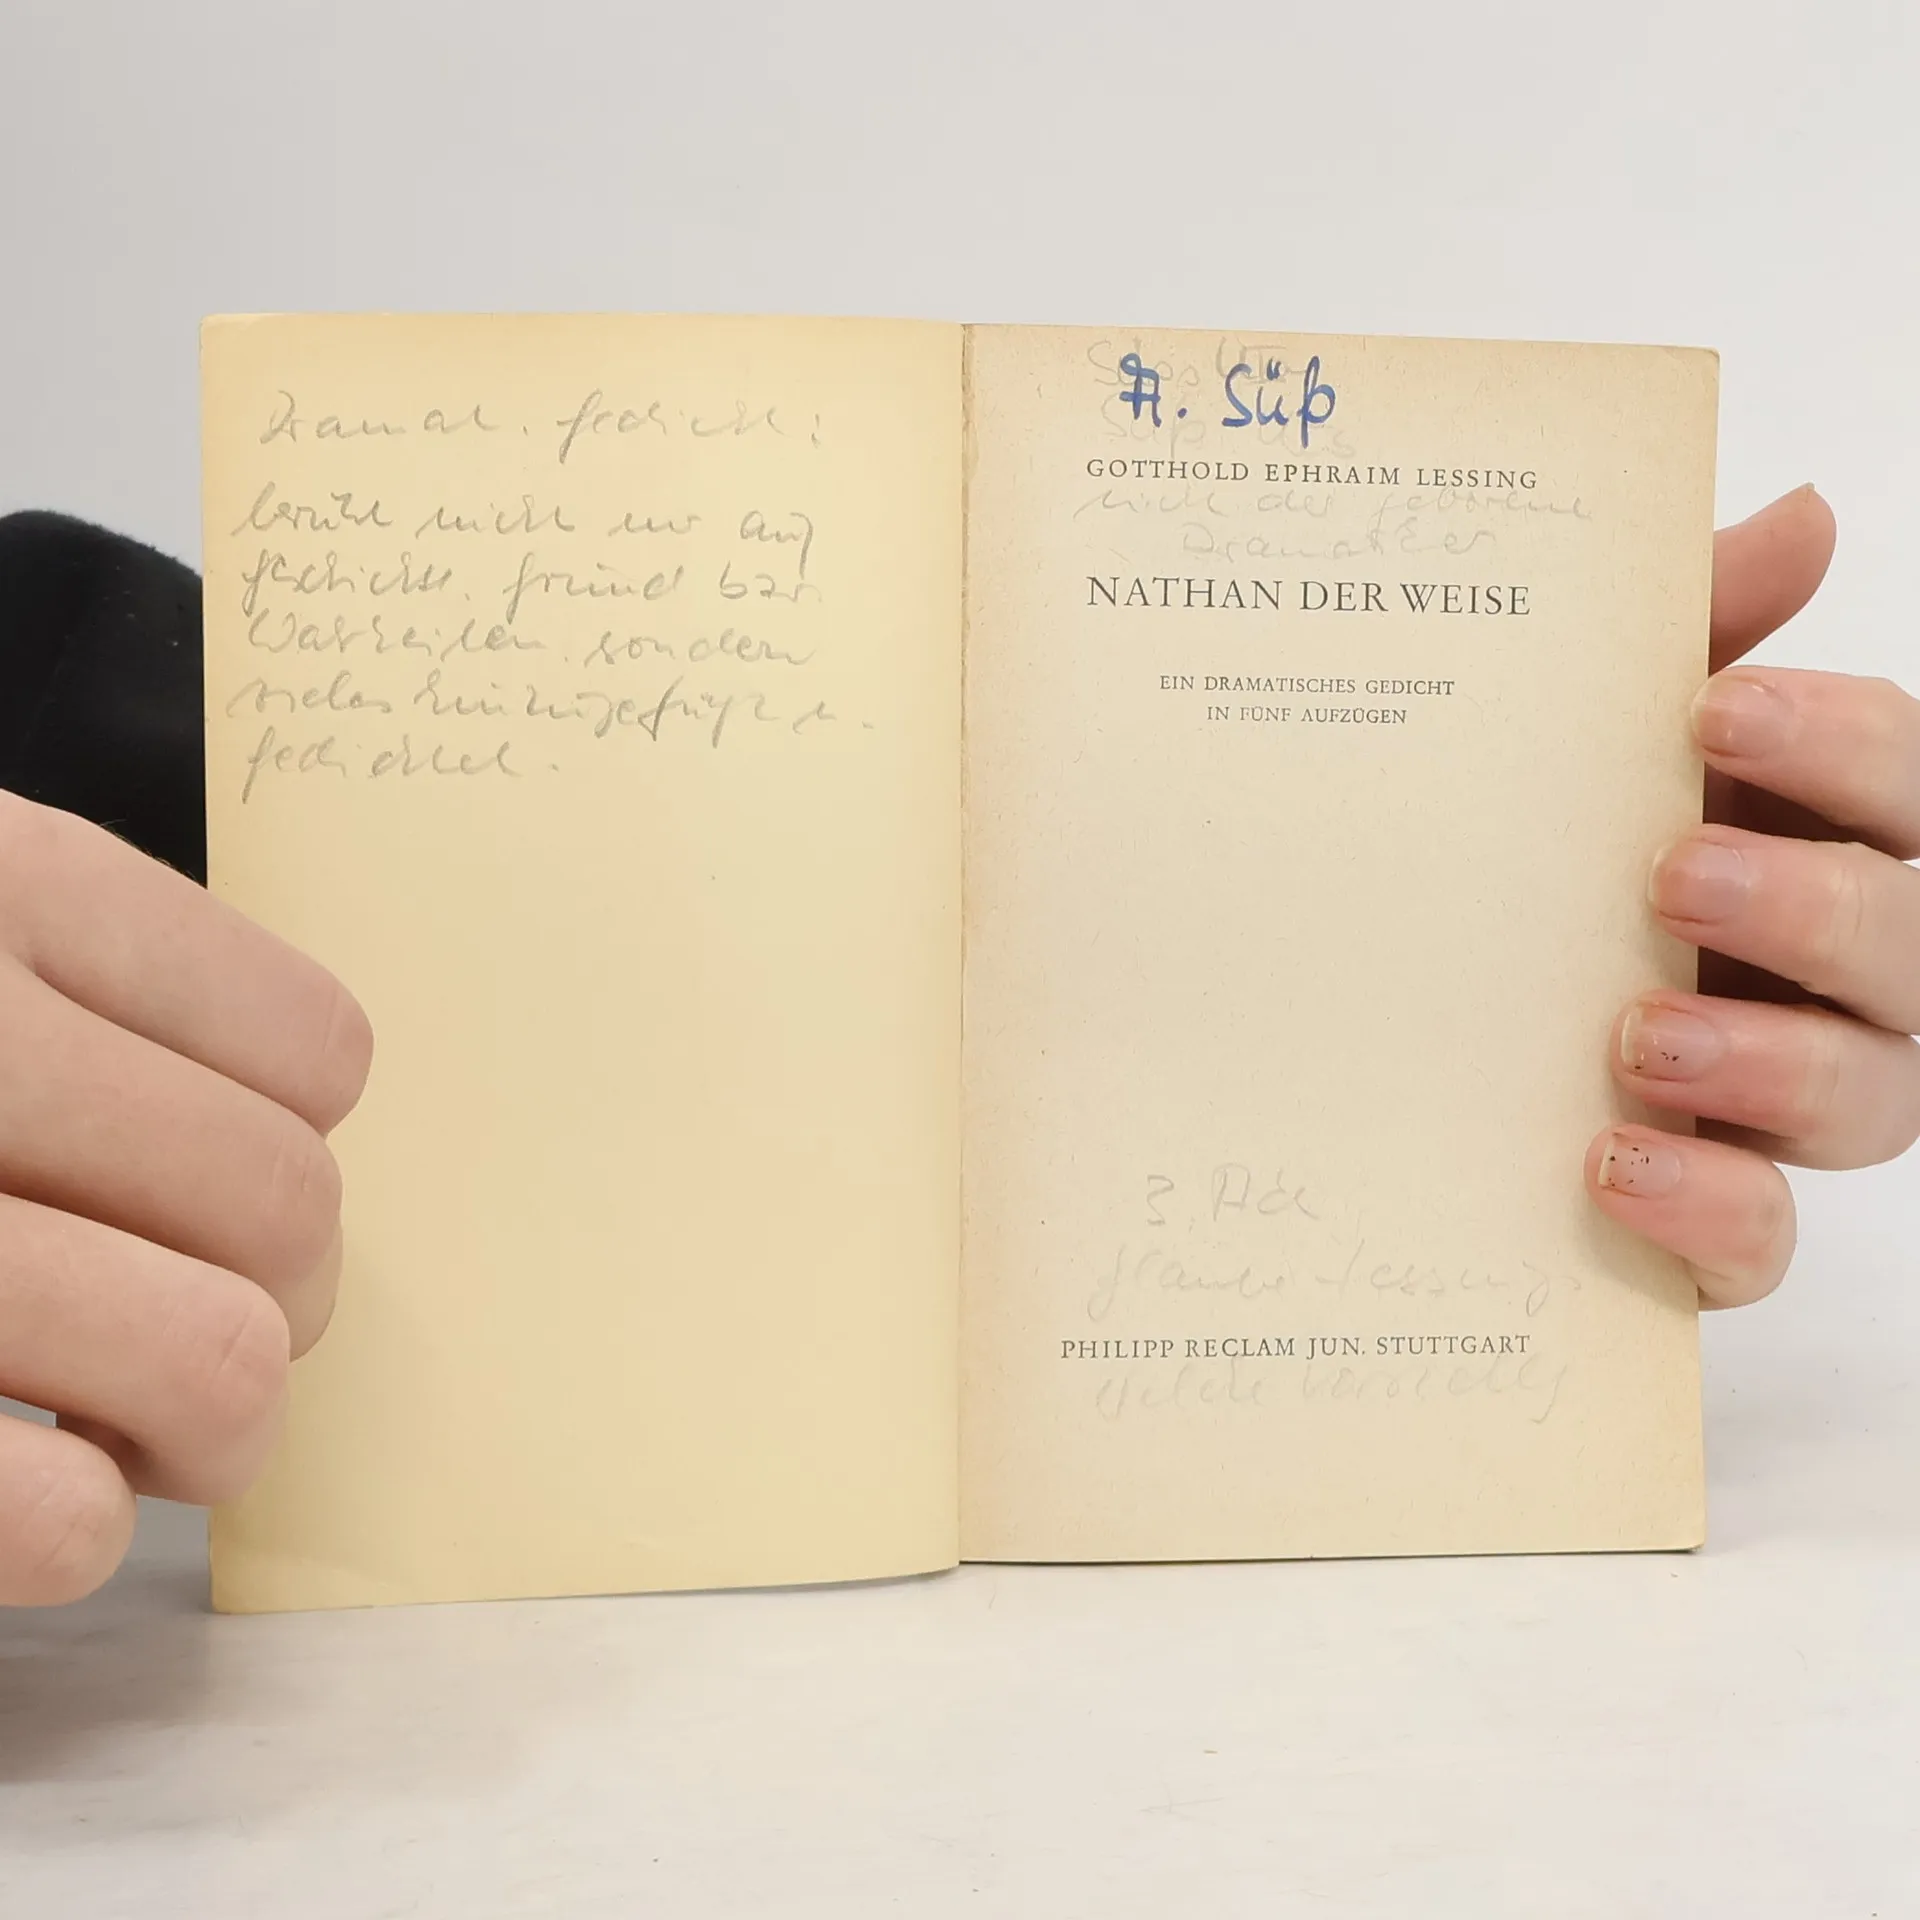 Dramat. Gedicht:
beruht nicht nur auf
geschichtl. Grund bzw.
Wahrheiten, sondern
vieles hinzugefügt u.
gedichtet.
A. Süß
Süß
GOTTHOLD EPHRAIM LESSING
nicht der geborene
Dramatiker
NATHAN DER WEISE
EIN DRAMATISCHES GEDICHT
IN FÜNF AUFZÜGEN
3. Akt
Glaube Lessings
PHILIPP RECLAM JUN. STUTTGART